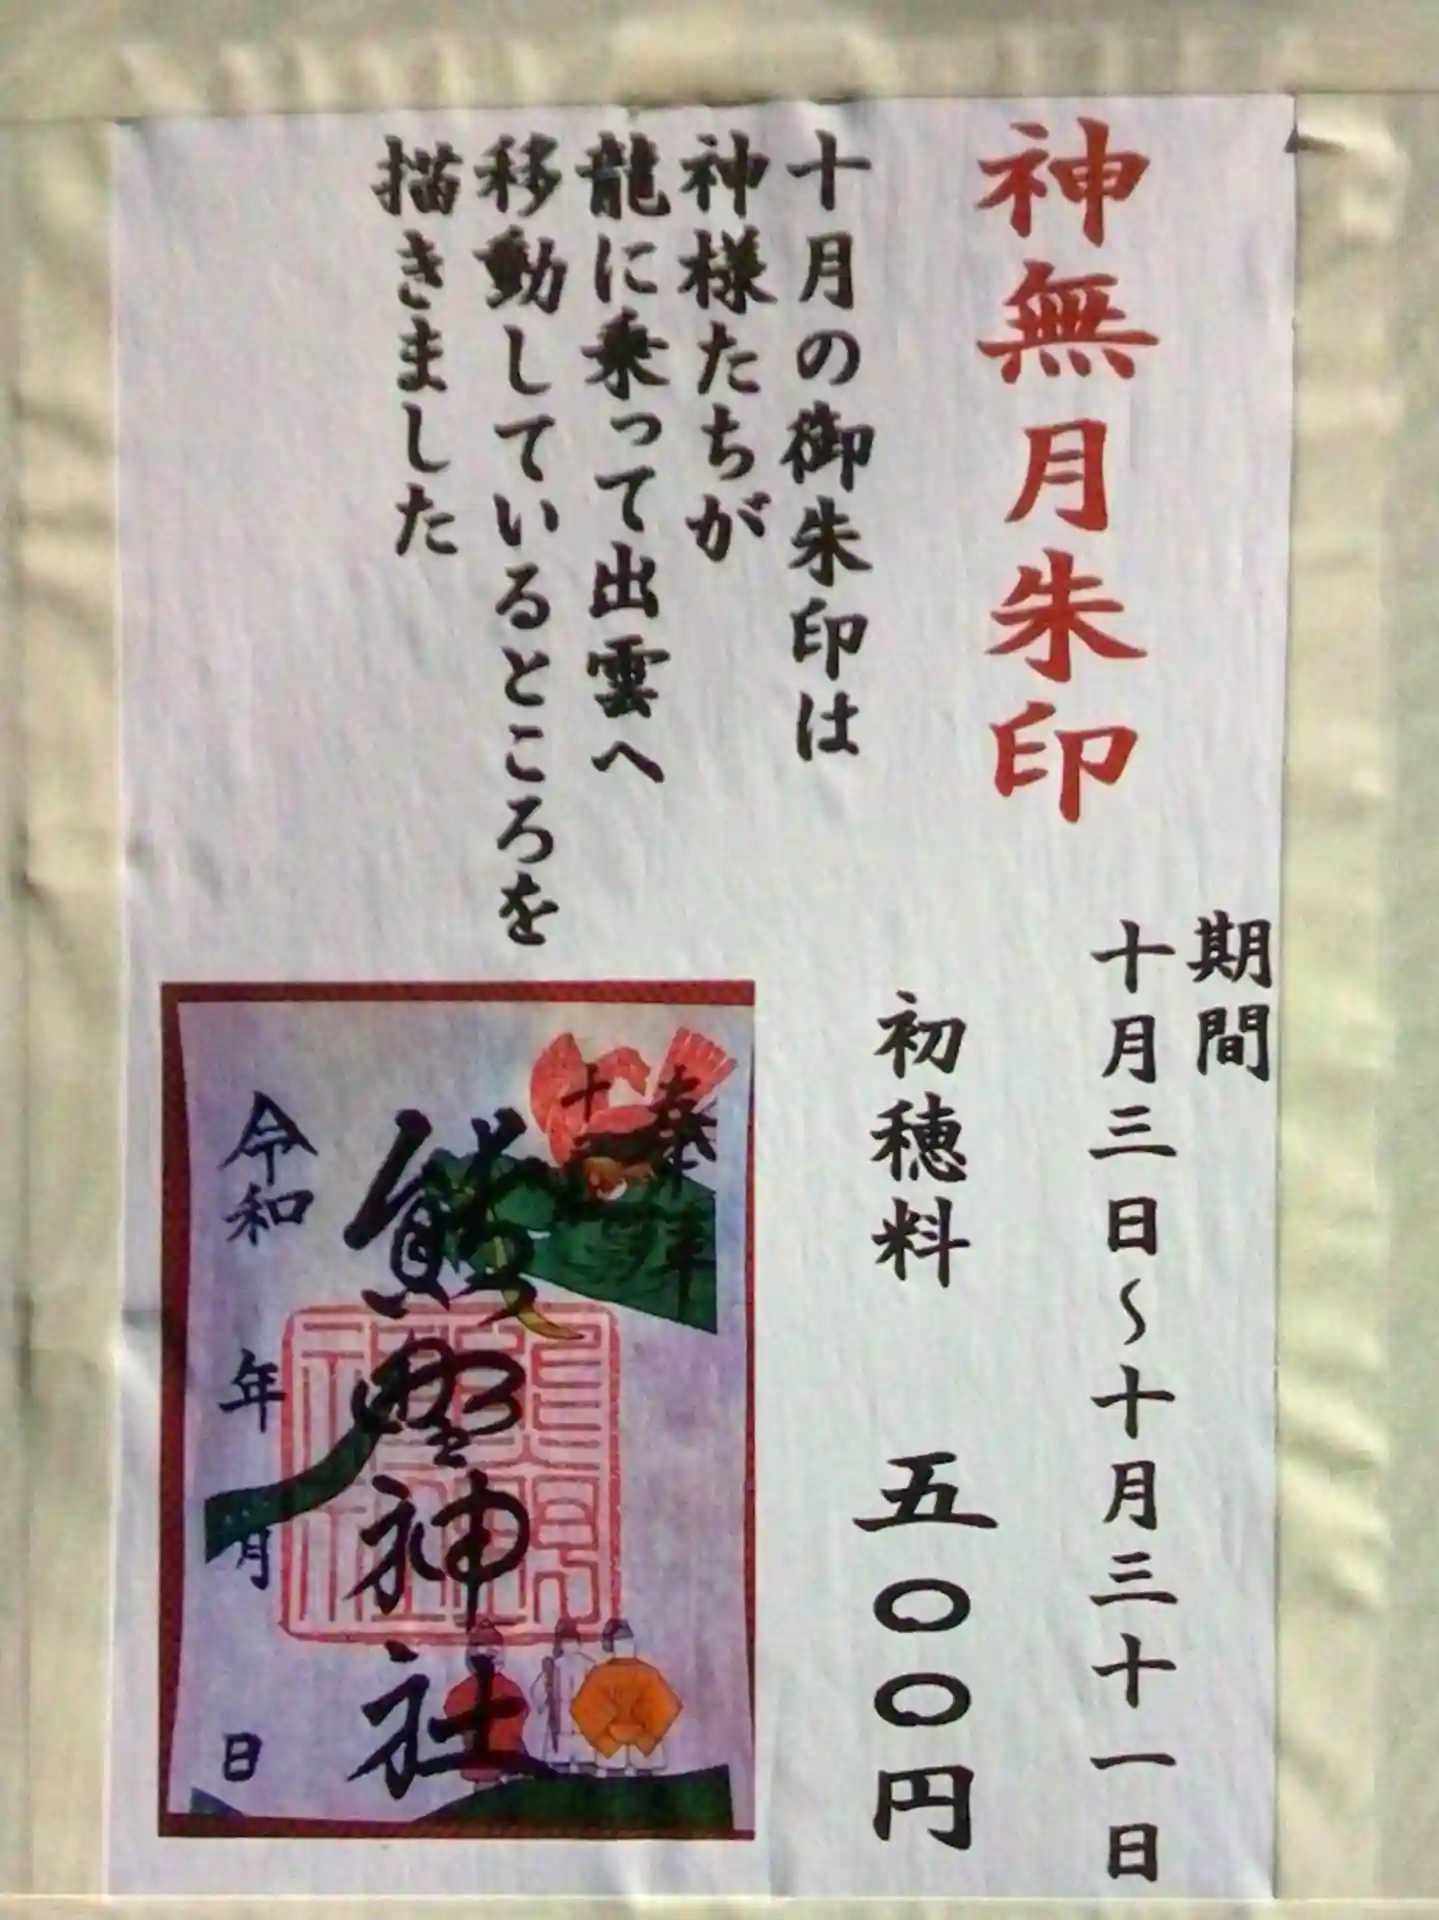 神無月朱印
期間
十月三日～十月三十一日
初穂料 五〇〇円
十月の御朱印は
神様たちが
龍に乗って出雲へ
移動しているところを
描きました
熊野神社
令和 年 月 日